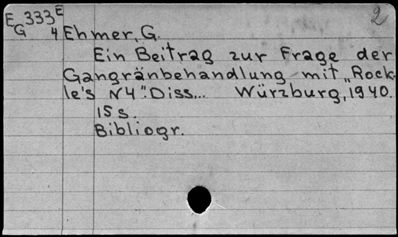 E 333 E 2
G 4 Ehmer, G.
Ein Beitrag zur Frage der
Gangränbehandlung mit „Rock-
le's N4". Diss... Würzburg, 1940.
15 s.
Bibliogr.